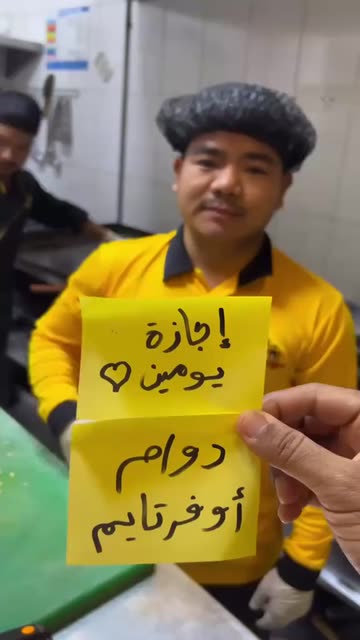 إجازة
يومين ♡
دوام
أوفرتايم